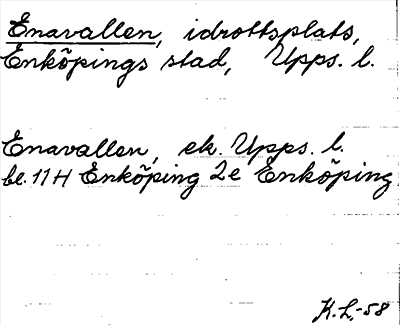 Enavallen, idrottsplats,
Enköpings stad, Upps. l.
Enavallen, ek. Upps. l.
bl. 11H Enköping 2e Enköping
K.L.-58